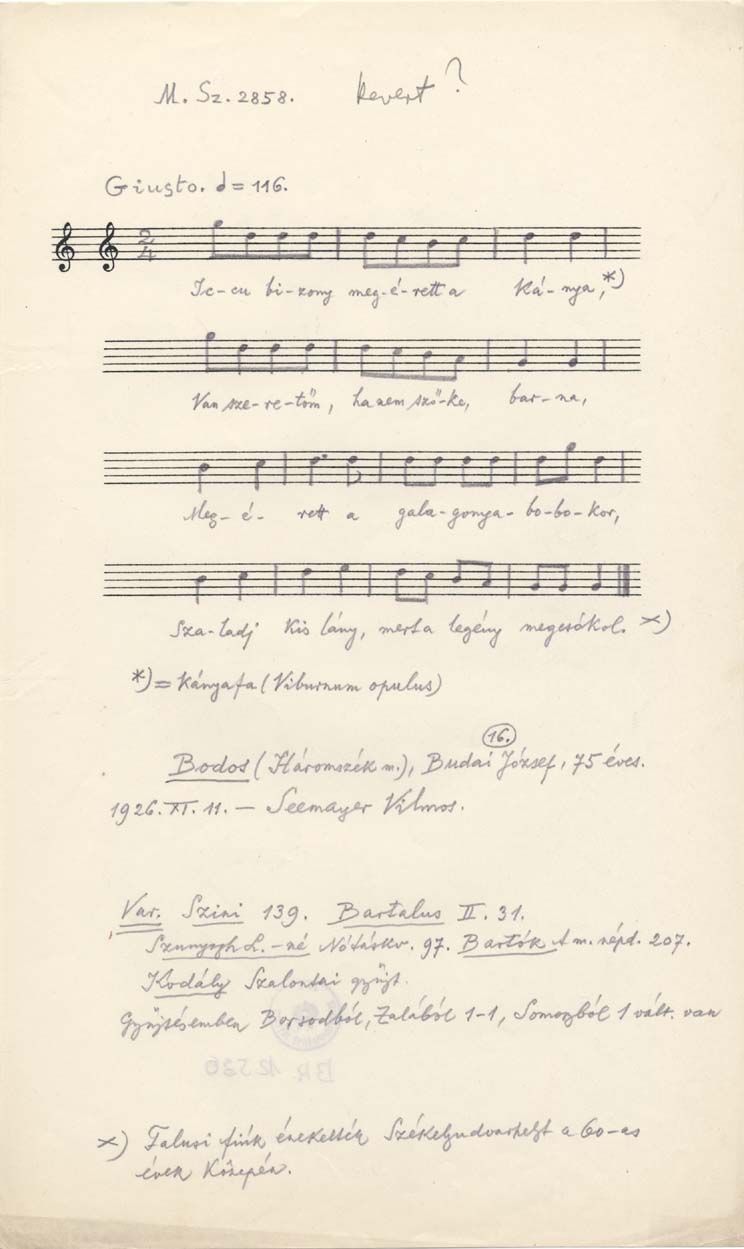 M. Sz. 2858. kevert?
Giusto. = 116.
2
4
Ic-cu bi-zony meg-é-rett a Ká-nya, *)
Van sze-re-töm, ha nem sző-ke, bar-na,
Meg-é-rett a gala-gonya-bo-bo-kor,
Sza-ladj kis lány, mert a legény megcsókol. ×)
*) = kányafa (Viburnum opulus)
16.
Bodos (Háromszék m.), Budai József, 75 éves.
1926. XI. 11. — Seemayer Vilmos.
Var. Szini 139. Bartalus II. 31.
Szunyogh L.-né Nótáskv. 97. Bartók A m. népd. 207.
Kodály Szalontai gyűjt.
Gyűjtésemben Borsodból, Zalából 1-1, Somogyból 1 vált. van
BR 12520
×) Falusi fiúk énekelték Székelyudvarhelyt a 60-as
évek közepén.